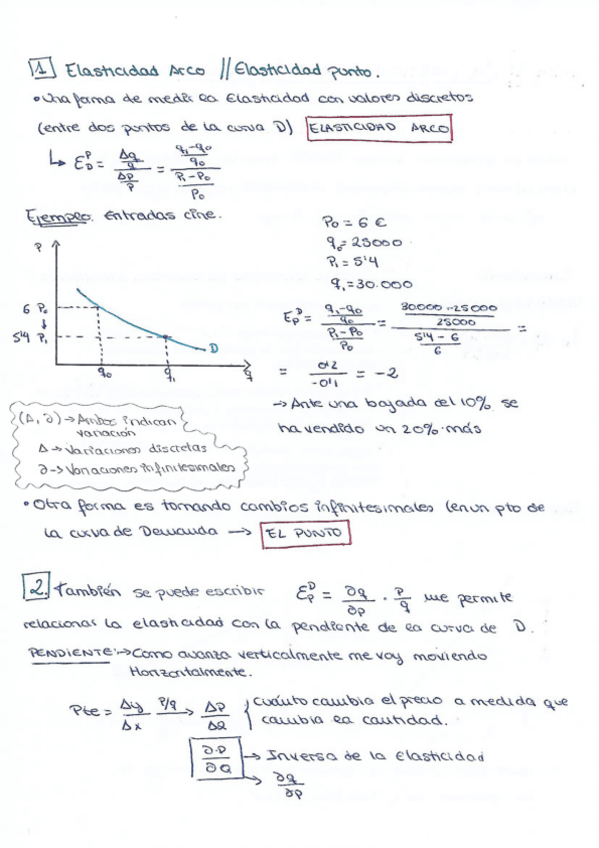 1 Elasticidad Arco // Elasticidad punto.
• Una forma de medir la Elasticidad con valores discretos
(entre dos puntos de la curva D) ELASTICIDAD ARCO
↳ E_D^P = (Δq/q)/(ΔP/P) = ((q₁-q₀)/q₀)/((P₁-P₀)/P₀)
Ejemplo. Entradas cine.
P₀ = 6 €
q₀ = 25000
P₁ = 5'4
q₁ = 30.000
P
6 P₀
5'4 P₁
D
q₀ q₁ q
E_P^D = ((q₁-q₀)/q₀)/((P₁-P₀)/P₀) = ((30000-25000)/25000)/((5'4-6)/6) =
= 0'2/-0'1 = -2
→ Ante una bajada del 10% se
ha vendido un 20% más
(Δ, ∂) → Ambos indican
variación
Δ → Variaciones discretas
∂ → Variaciones infinitesimales
• Otra forma es tomando cambios infinitesimales (en un pto de
la curva de Demanda → EL PUNTO
2. También se puede escribir E_P^D = ∂q/∂p · P/q me permite
relacionar la elasticidad con la pendiente de la curva de D.
PENDIENTE: → Como avanza verticalmente me voy moviendo
Horizontalmente.
Pte = Δy/Δx P/q → ΔP/ΔQ { Cuánto cambia el precio a medida que
cambia la cantidad.
∂P/∂Q → Inversa de la Elasticidad
→ ∂q/∂p